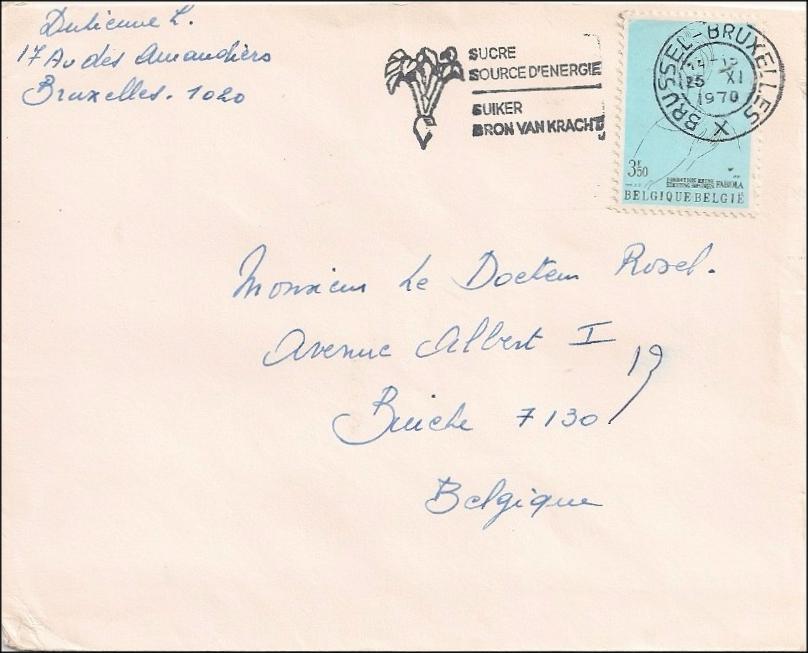 Dutienne L.
17 Av des Amandiers
Bruxelles. 1020
SUCRE
SOURCE D'ENERGIE
SUIKER
BRON VAN KRACHT
BRUSSEL-BRUXELLES
25 XI
1970
X
3F50
FABIOLA
BELGIQUE BELGIË
Monsieur Le Docteur Rosel.
Avenue Albert I 19
Binche 7130
Belgique